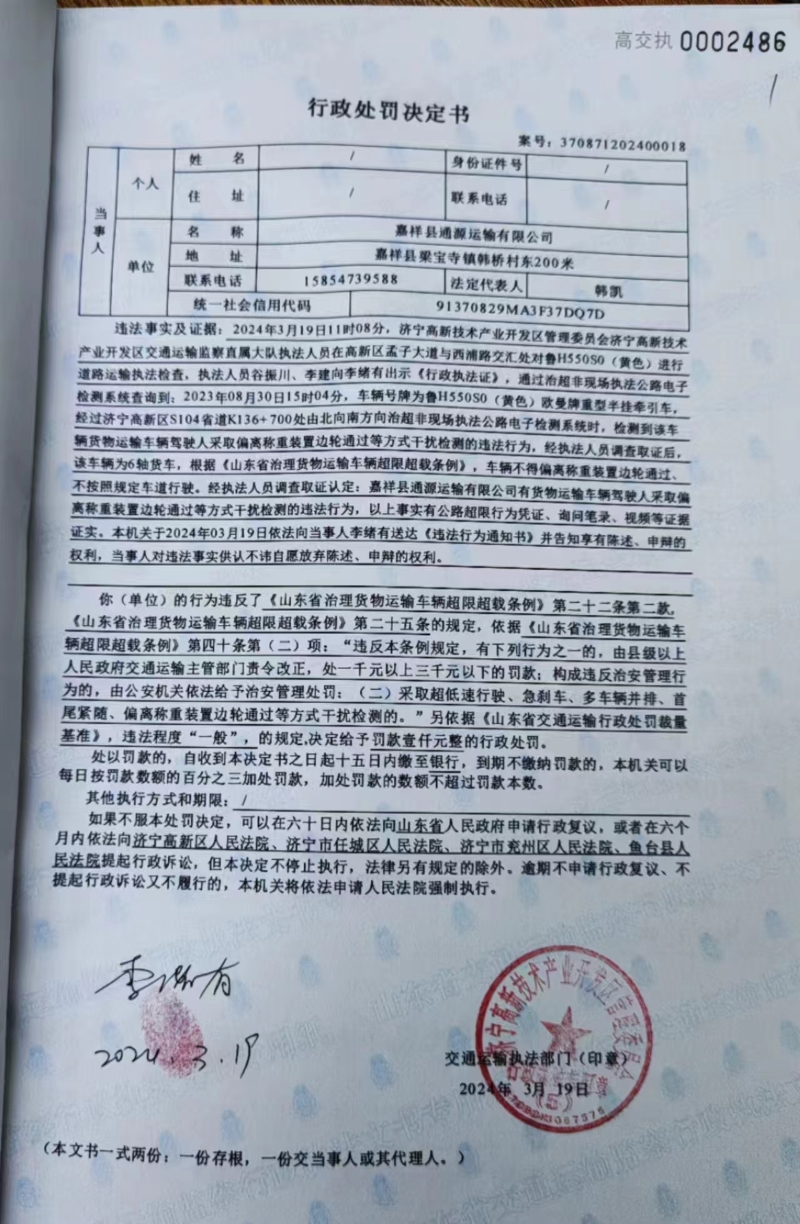 高交执 0002486
1
行政处罚决定书
案号：370871202400018
当事人
个人
姓 名 / 身份证件号 /
住 址 / 联系电话 /
单位
名 称 嘉祥县通源运输有限公司
地 址 嘉祥县梁宝寺镇韩桥村东200米
联系电话 15854739588 法定代表人 韩凯
统一社会信用代码 91370829MA3F37DQ7D
违法事实及证据：2024年3月19日11时08分，济宁高新技术产业开发区管理委员会济宁高新技术
产业开发区交通运输监察直属大队执法人员在高新区孟子大道与西浦路交汇处对鲁H550S0（黄色）进行
道路运输执法检查，执法人员谷振川、李建向李绪有出示《行政执法证》，通过治超非现场执法公路电子
检测系统查询到：2023年08月30日15时04分，车辆号牌为鲁H550S0（黄色）欧曼牌重型半挂牵引车，
经过济宁高新区S104省道K136+700处由北向南方向治超非现场执法公路电子检测系统时，检测到该车
辆货物运输车辆驾驶人采取偏离称重装置边轮通过等方式干扰检测的违法行为，经执法人员调查取证后，
该车辆为6轴货车，根据《山东省治理货物运输车辆超限超载条例》，车辆不得偏离称重装置边轮通过、
不按照规定车道行驶。经执法人员调查取证认定：嘉祥县通源运输有限公司有货物运输车辆驾驶人采取偏
离称重装置边轮通过等方式干扰检测的违法行为，以上事实有公路超限行为凭证、询问笔录、视频等证据
证实。本机关于2024年03月19日依法向当事人李绪有送达《违法行为通知书》并告知享有陈述、申辩的
权利，当事人对违法事实供认不讳自愿放弃陈述、申辩的权利。
你（单位）的行为违反了《山东省治理货物运输车辆超限超载条例》第二十二条第二款，
《山东省治理货物运输车辆超限超载条例》第二十五条的规定，依据《山东省治理货物运输车
辆超限超载条例》第四十条第（二）项：“违反本条例规定，有下列行为之一的，由县级以上
人民政府交通运输主管部门责令改正，处一千元以上三千元以下的罚款；构成违反治安管理行
为的，由公安机关依法给予治安管理处罚：（二）采取超低速行驶、急刹车、多车辆并排、首
尾紧随、偏离称重装置边轮通过等方式干扰检测的。”另依据《山东省交通运输行政处罚裁量
基准》，违法程度“一般”，的规定,决定给予罚款壹仟元整的行政处罚。
处以罚款的，自收到本决定书之日起十五日内缴至银行，到期不缴纳罚款的，本机关可以
每日按罚款数额的百分之三加处罚款，加处罚款的数额不超过罚款本数。
其他执行方式和期限：/
如果不服本处罚决定，可以在六十日内依法向山东省人民政府申请行政复议，或者在六个
月内依法向济宁高新区人民法院、济宁市任城区人民法院、济宁市兖州区人民法院、鱼台县人
民法院提起行政诉讼，但本决定不停止执行，法律另有规定的除外。逾期不申请行政复议、不
提起行政诉讼又不履行的，本机关将依法申请人民法院强制执行。
李绪有
2024.3.19
济宁高新技术产业开发区管理委员会
交通运输执法部门（印章）
2024年 3月 19日
（5）
（本文书一式两份：一份存根，一份交当事人或其代理人。）